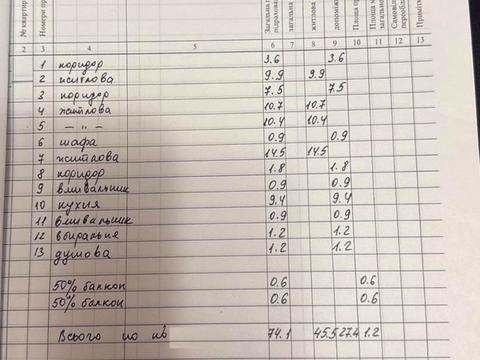 № квартир
Номери пр
Загальна п
підрахован
загальна
житлова
допоміж
Площа
Площа
загально
Самовіль
переобла
Приміт
2 3 4 5 6 7 8 9 10 11 12 13
1 коридор 3.6 3.6
2 житлова 9.9 9.9
3 коридор 7.5 7.5
4 житлова 10.7 10.7
5 — „ — 10.4 10.4
6 шафа 0.9 0.9
7 житлова 14.5 14.5
8 коридор 1.8 1.8
9 вмивальник 0.9 0.9
10 кухня 9.4 9.4
11 вмивальник 0.9 0.9
12 вбиральня 1.2 1.2
13 душова 1.2 1.2
50% балкон 0.6 0.6
50% балкон 0.6 0.6
Всього по кв 74.1 45.5 27.4 1.2